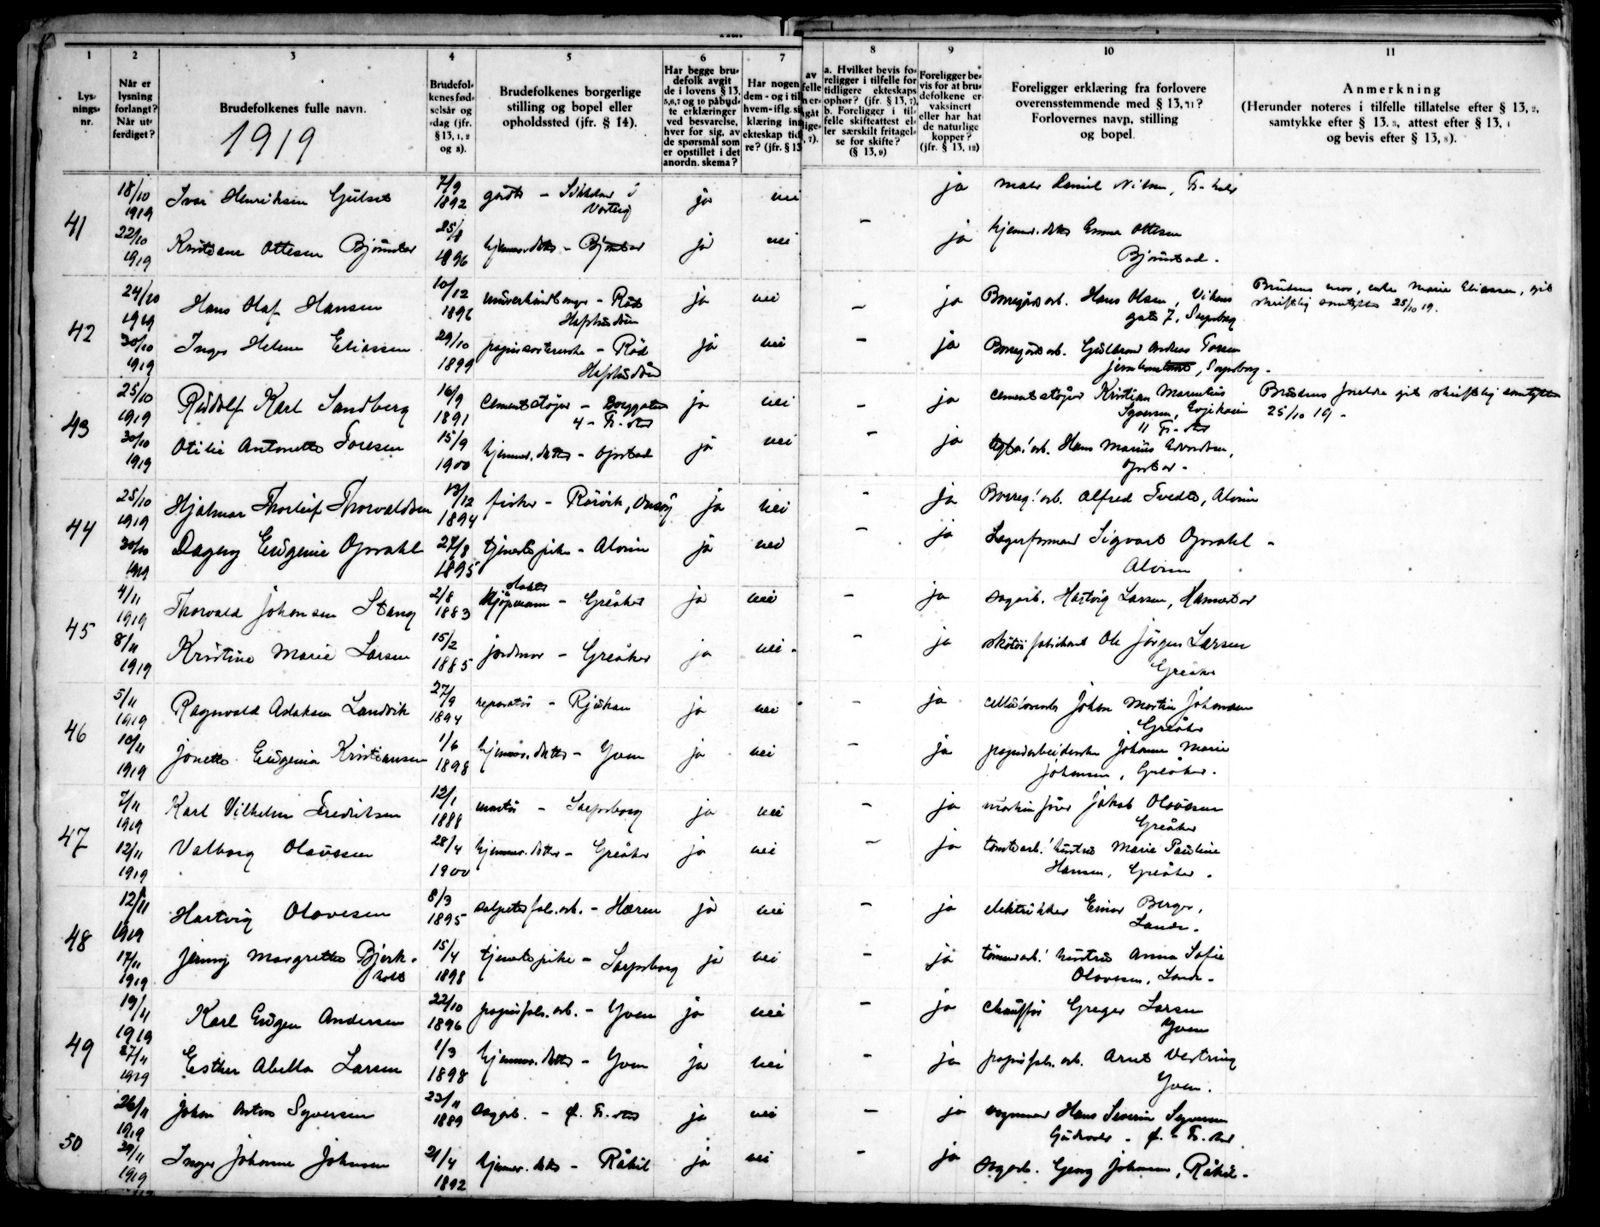 1 2 3 4 5 6 7 8 9 10 11
Lys-
nings-
nr.
Når er
lysning
forlangt?
Når ut-
ferdiget?
Brudefolkenes fulle navn.
1919
Brudefol-
kenes fød-
selsår og
-dag (jfr.
§ 13, 1, 2
og 3).
Brudefolkenes borgerlige
stilling og bopel eller
opholdssted (jfr. § 14).
Har begge bru-
defolk avgit
de i lovens § 13,
5,6,7 og 10 påbud-
te erklæringer
ved besvarelse,
hver for sig, av
de spørsmål som
er opstillet i det
anordn. skema?
Har nogen
dem - og i til
hvem - iflg. si
klæring in
ekteskap tid
re? (jfr. § 13
a. Hvilket bevis fo-
religger i tilfelle for
tidligere ekteskaps
ophør? (jfr. § 13, 7).
b. Foreligger i til-
felle skifteattest el-
ler særskilt fritagel-
se for skifte?
(§ 13, 9)
Foreligger be-
vis for at bru-
defolkene er
vaksinert
eller har hat
de naturlige
kopper?
(jfr. § 13, 12)
Foreligger erklæring fra forlovere
overensstemmende med § 13, 11?
Forlovernes navn, stilling
og bopel.
Anmerkning
(Herunder noteres i tilfelle tillatelse efter § 13, 2,
samtykke efter § 13, 3, attest efter § 13, 4
og bevis efter § 13, 8).
41
18/10 1919 Ivar Henriksen Gulset 7/9 1892 ja nei ja
22/10 1919 Ottesen 1896 hjemmev. datter ja nei – ja hjemmev. datter Emma Ottesen
42
24/10 1919 Hans Olaf Hansen 10/12 1896 Hafslundsøen ja nei – ja Borregårdsarb. Hans Olsen, Vikens
gate 7, Sarpsborg
Brudens mor, enke Marie Eliassen, gir
skriftlig samtykke 25/10 19.
30/10 1919 Inga Helene Eliassen 29/10 1899 – Rød Hafslundsøen ja nei – ja Borregårdsarb. Gulbrand Andreas
Sarpsborg.
43
25/10 1919 Rudolf Karl Sandberg 16/9 1891 cementstøper ja nei – ja cementstøper Kristian
Brudens foreldre gir skriftlig samtykke
25/10 19 –
30/10 1919 Otilie Antonette Toresen 15/9 1900 hjemmev. datter – Opstad ja nei – ja Hans Marius
Opstad –
44
25/10 1919 Hjalmar Thorleif Thorvaldsen 13/12 1894 fisker – Rørvik, Onsøy ja nei – ja Borreg. arb. Alfred Tvedte, Alvim
30/10 1919 Dagny Eugenie Opsahl 24/8 1895 tjenestepike – Alvim ja nei – ja Lagerformand Sigvart Opsahl –
Alvim
45
4/11 1919 Thorvald Johansen Stang 2/8 1883 – Greåker ja nei – ja sagarb. Hartvig Larsen, Hannestad
8/11 1919 Kristine Marie Larsen 15/2 1885 jordmor – Greåker ja nei – ja skotøifabrikant Ole Jørgen Larsen
Greåker
46
5/11 1919 Ragnvald Aslaksen Landvik 27/9 1894 reparatør – Rjukan ja nei – ja Johan Martin Johansen
Greåker
10/11 1919 Jonette Eugenia Kristiansen 1/6 1898 hjemmev. datter – Yven ja nei – ja papirarbeiderske Johanne Marie
Johansen, Greåker.
47
7/11 1919 Karl Vilhelm Fredriksen 12/1 1888 – Sarpsborg ja nei – ja maskinfører Jakob Olavesen
Greåker
12/11 1919 Valborg Olavesen 28/4 1900 hjemmev. datter – Greåker ja nei – ja tomtearb. hustru Marie Pauline
Hansen, Greåker.
48
12/11 1919 Hartvig Olavesen 8/3 1895 salpeterfab. arb. – Hæren ja nei – ja elektriker Einar Berger,
Lande.
17/11 1919 Jenny Margrethe Bjerk-
holt 15/4 1898 tjenestepike – Sarpsborg ja nei – ja tømmerarb. hustru Anna Sofie
Olavesen, Lande –
49
19/11 1919 Karl Eugen Andersen 22/10 1896 papirfab. arb. – Yven ja nei – ja chauffør Greger Larsen
Yven
27/11 1919 Esther Abella Larsen 1/3 1898 hjemmev. datter – Yven ja nei – ja papirfab. arb. Arnt
Yven.
50
26/11 1919 Johan Anton Syversen 23/11 1889 sagarb. – Ø. Fr.stad ja nei – ja Hans Severin Syversen
Ø. Fr.stad.
29/11 1919 Inga Johanne Johnsen 21/4 1892 hjemmev. datter – Råkil ja nei – ja sagarb. Georg Johnsen, Råkil –